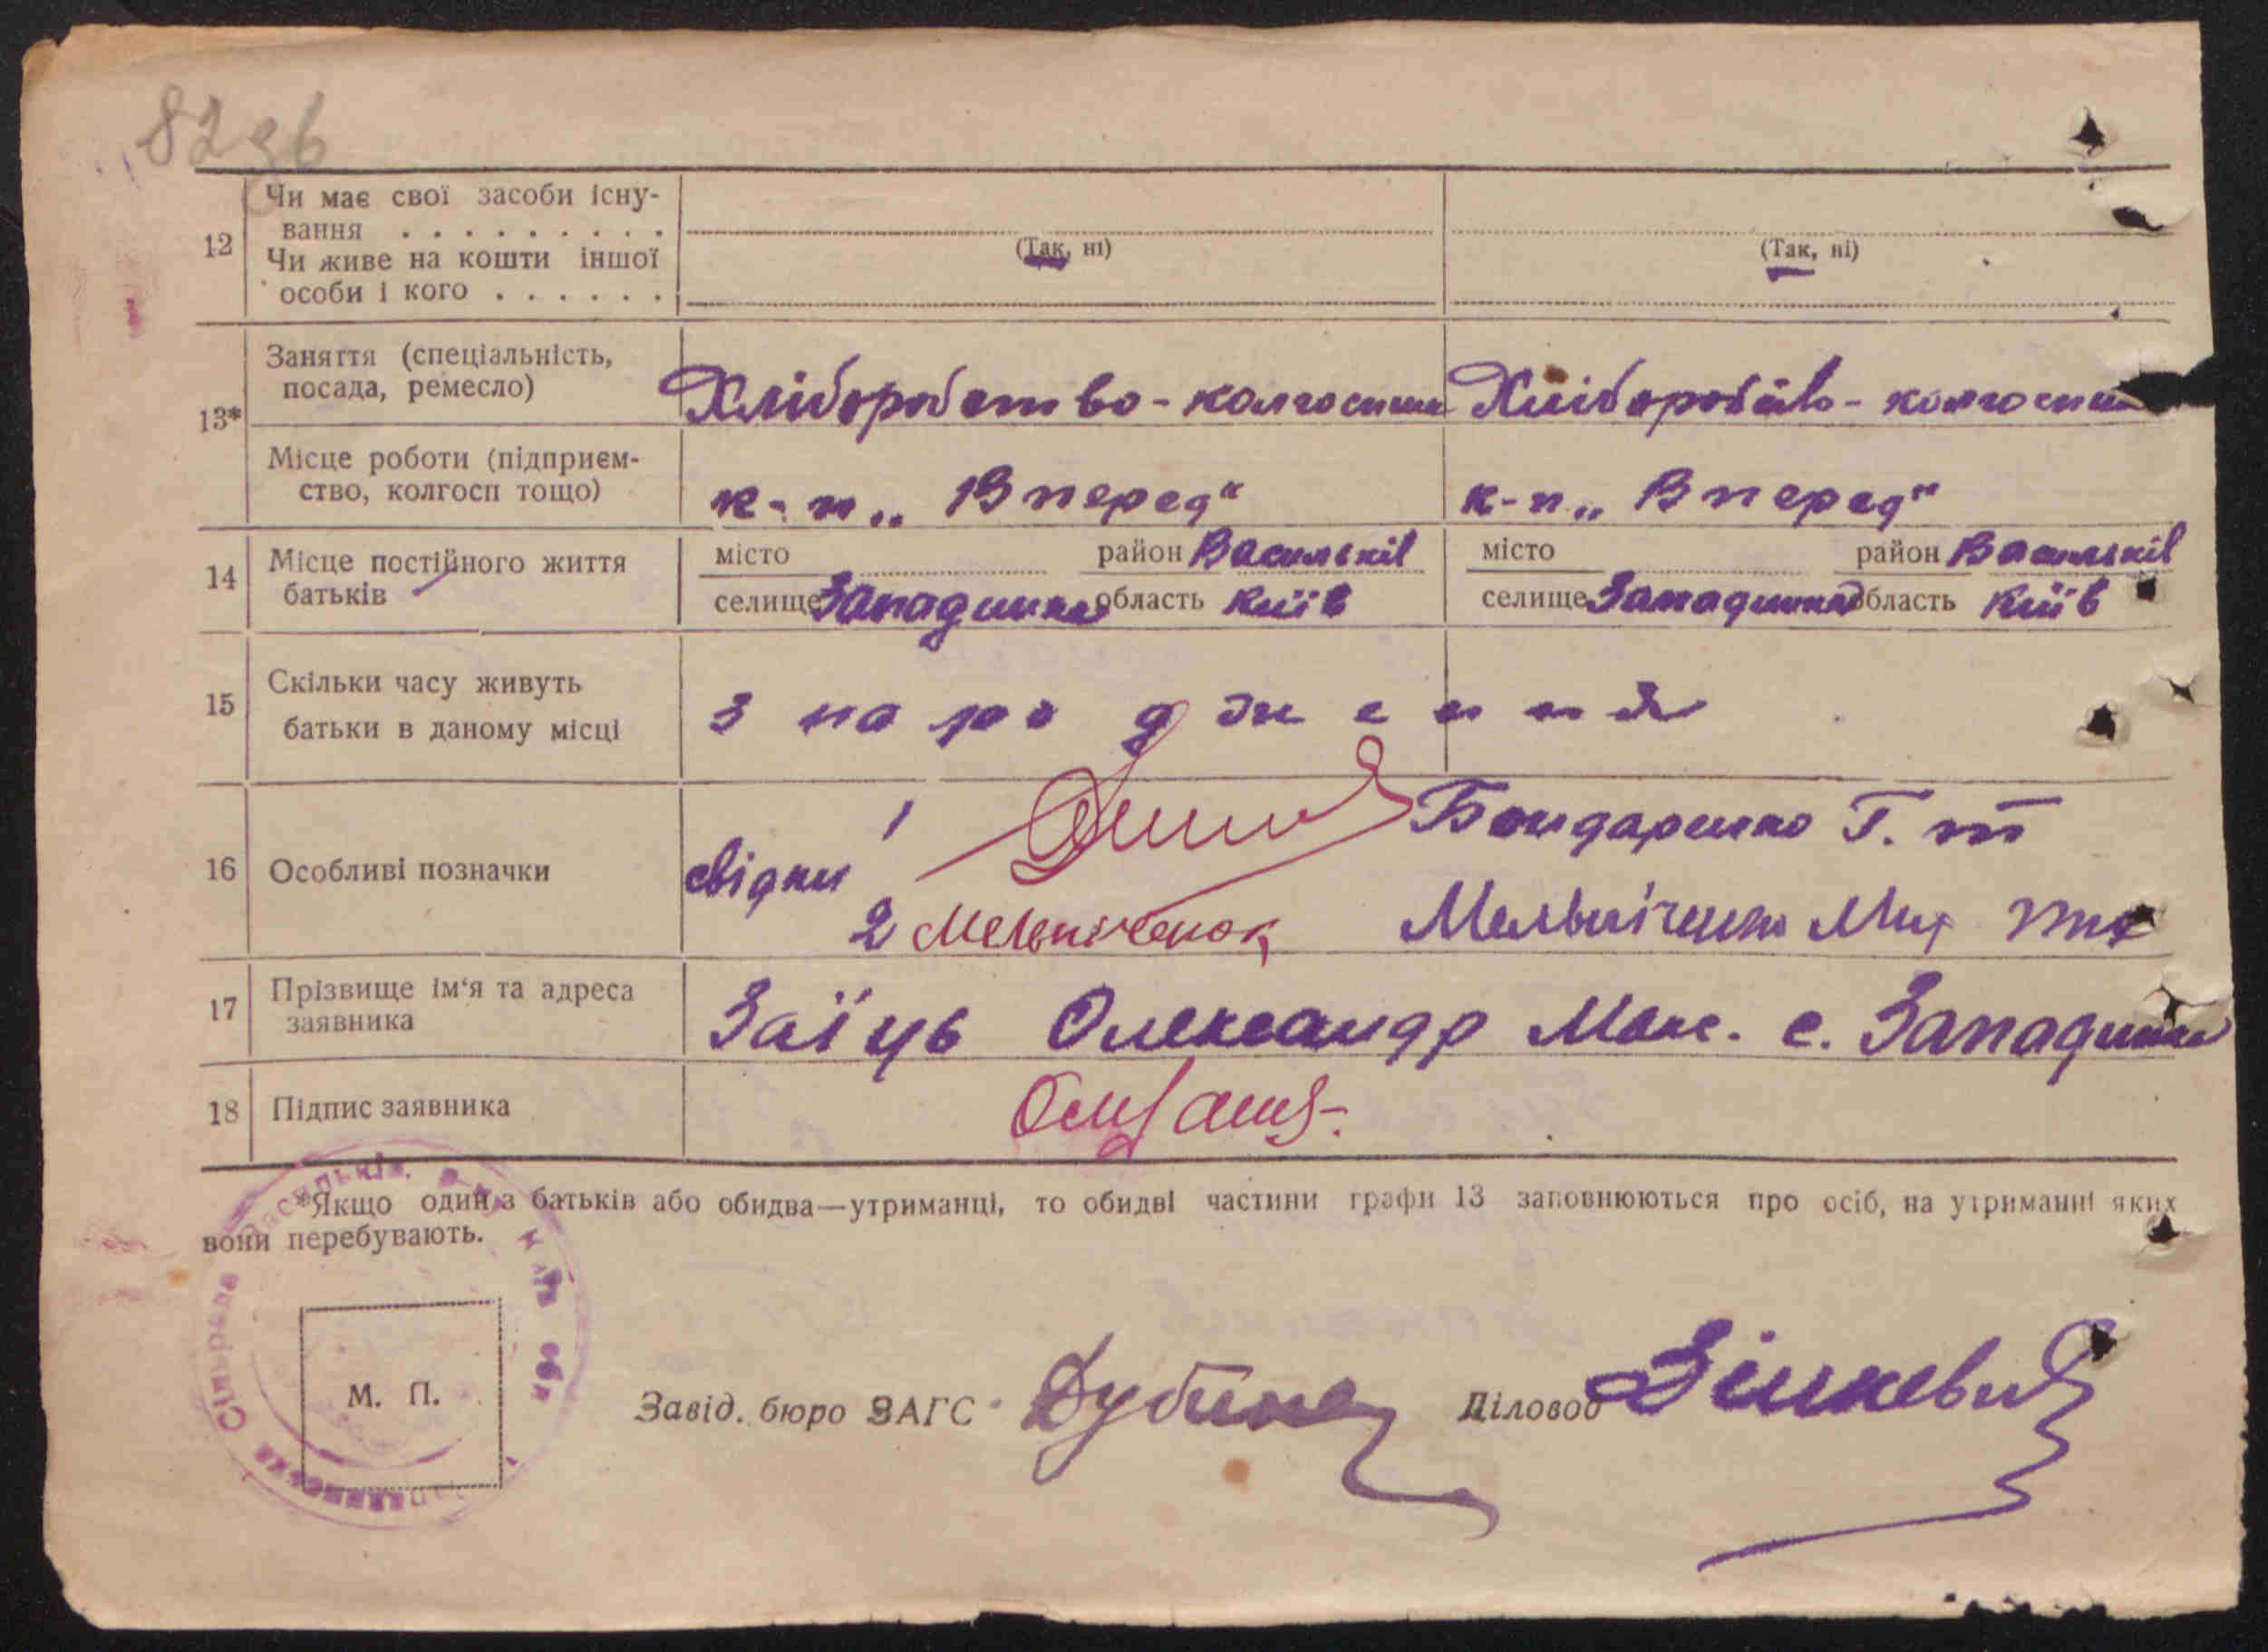 82зв
12 Чи має свої засоби існу-
вання . . . . . . . . .
Чи живе на кошти іншої
особи і кого . . . . . .
(Так, ні) (Так, ні)
13* Заняття (спеціальність,
посада, ремесло)
Хліборобство - колгоспник Хліборобство - колгоспник
Місце роботи (підприєм-
ство, колгосп тощо)
к-п „Вперед“ к-п „Вперед“
14 Місце постійного життя
батьків
місто район Васильків місто район Васильків
селище Западинка область Київ селище Западинка область Київ
15 Скільки часу живуть
батьки в даному місці
з народження
16 Особливі позначки
свідки
1 Бондаренко Г.
2 Мельніченок Мельніченко Мих
17 Прізвище ім'я та адреса
заявника
Заїць Олександр Макс. с. Западинка
18 Підпис заявника
*Якщо один з батьків або обидва—утриманці, то обидві частини графи 13 заповнюються про осіб, на утриманні яких
вони перебувають.
М. П.
Завід. бюро ЗАГС Дубина Діловод Зінкевич
Сільрада Васильків. обл